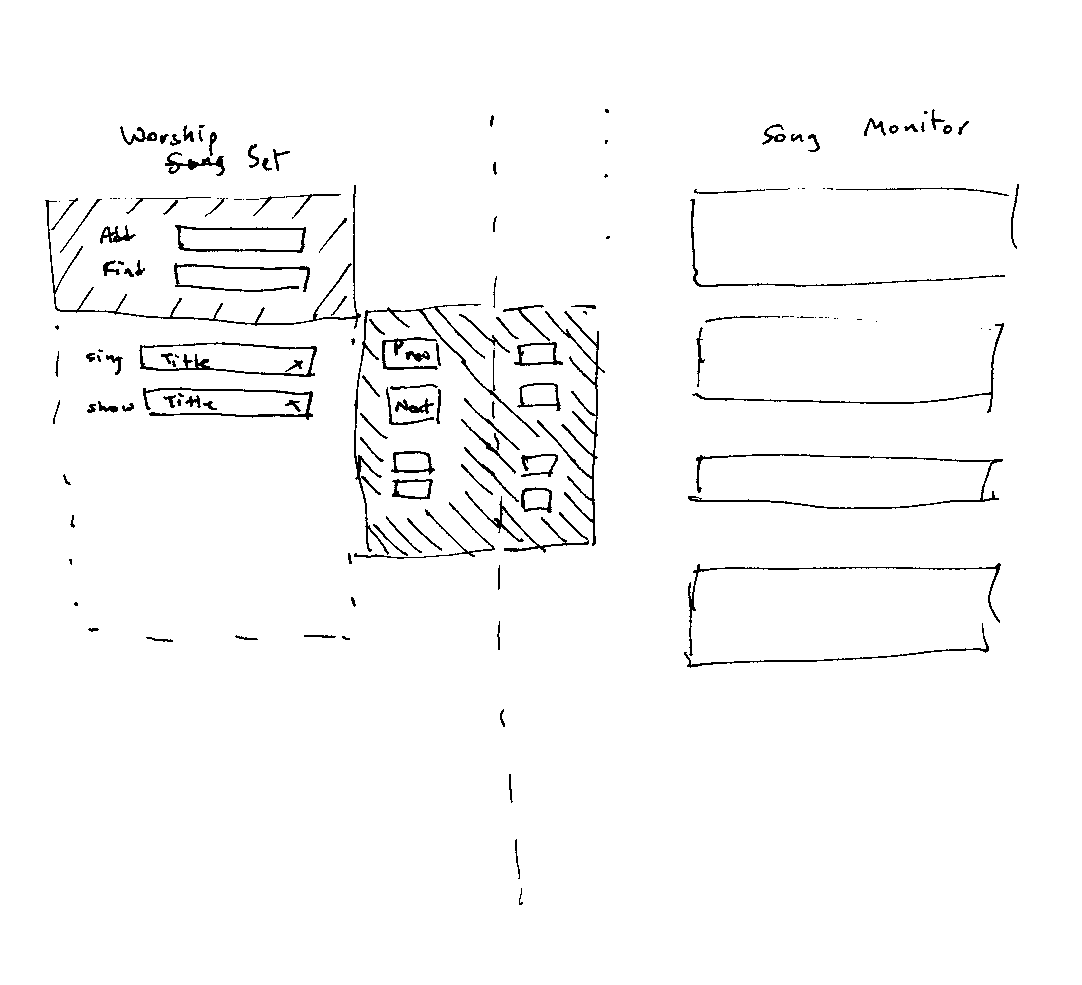 Worship
Song Set
Add
Find
sing Title x
show Title x
Prev
Next
Song Monitor